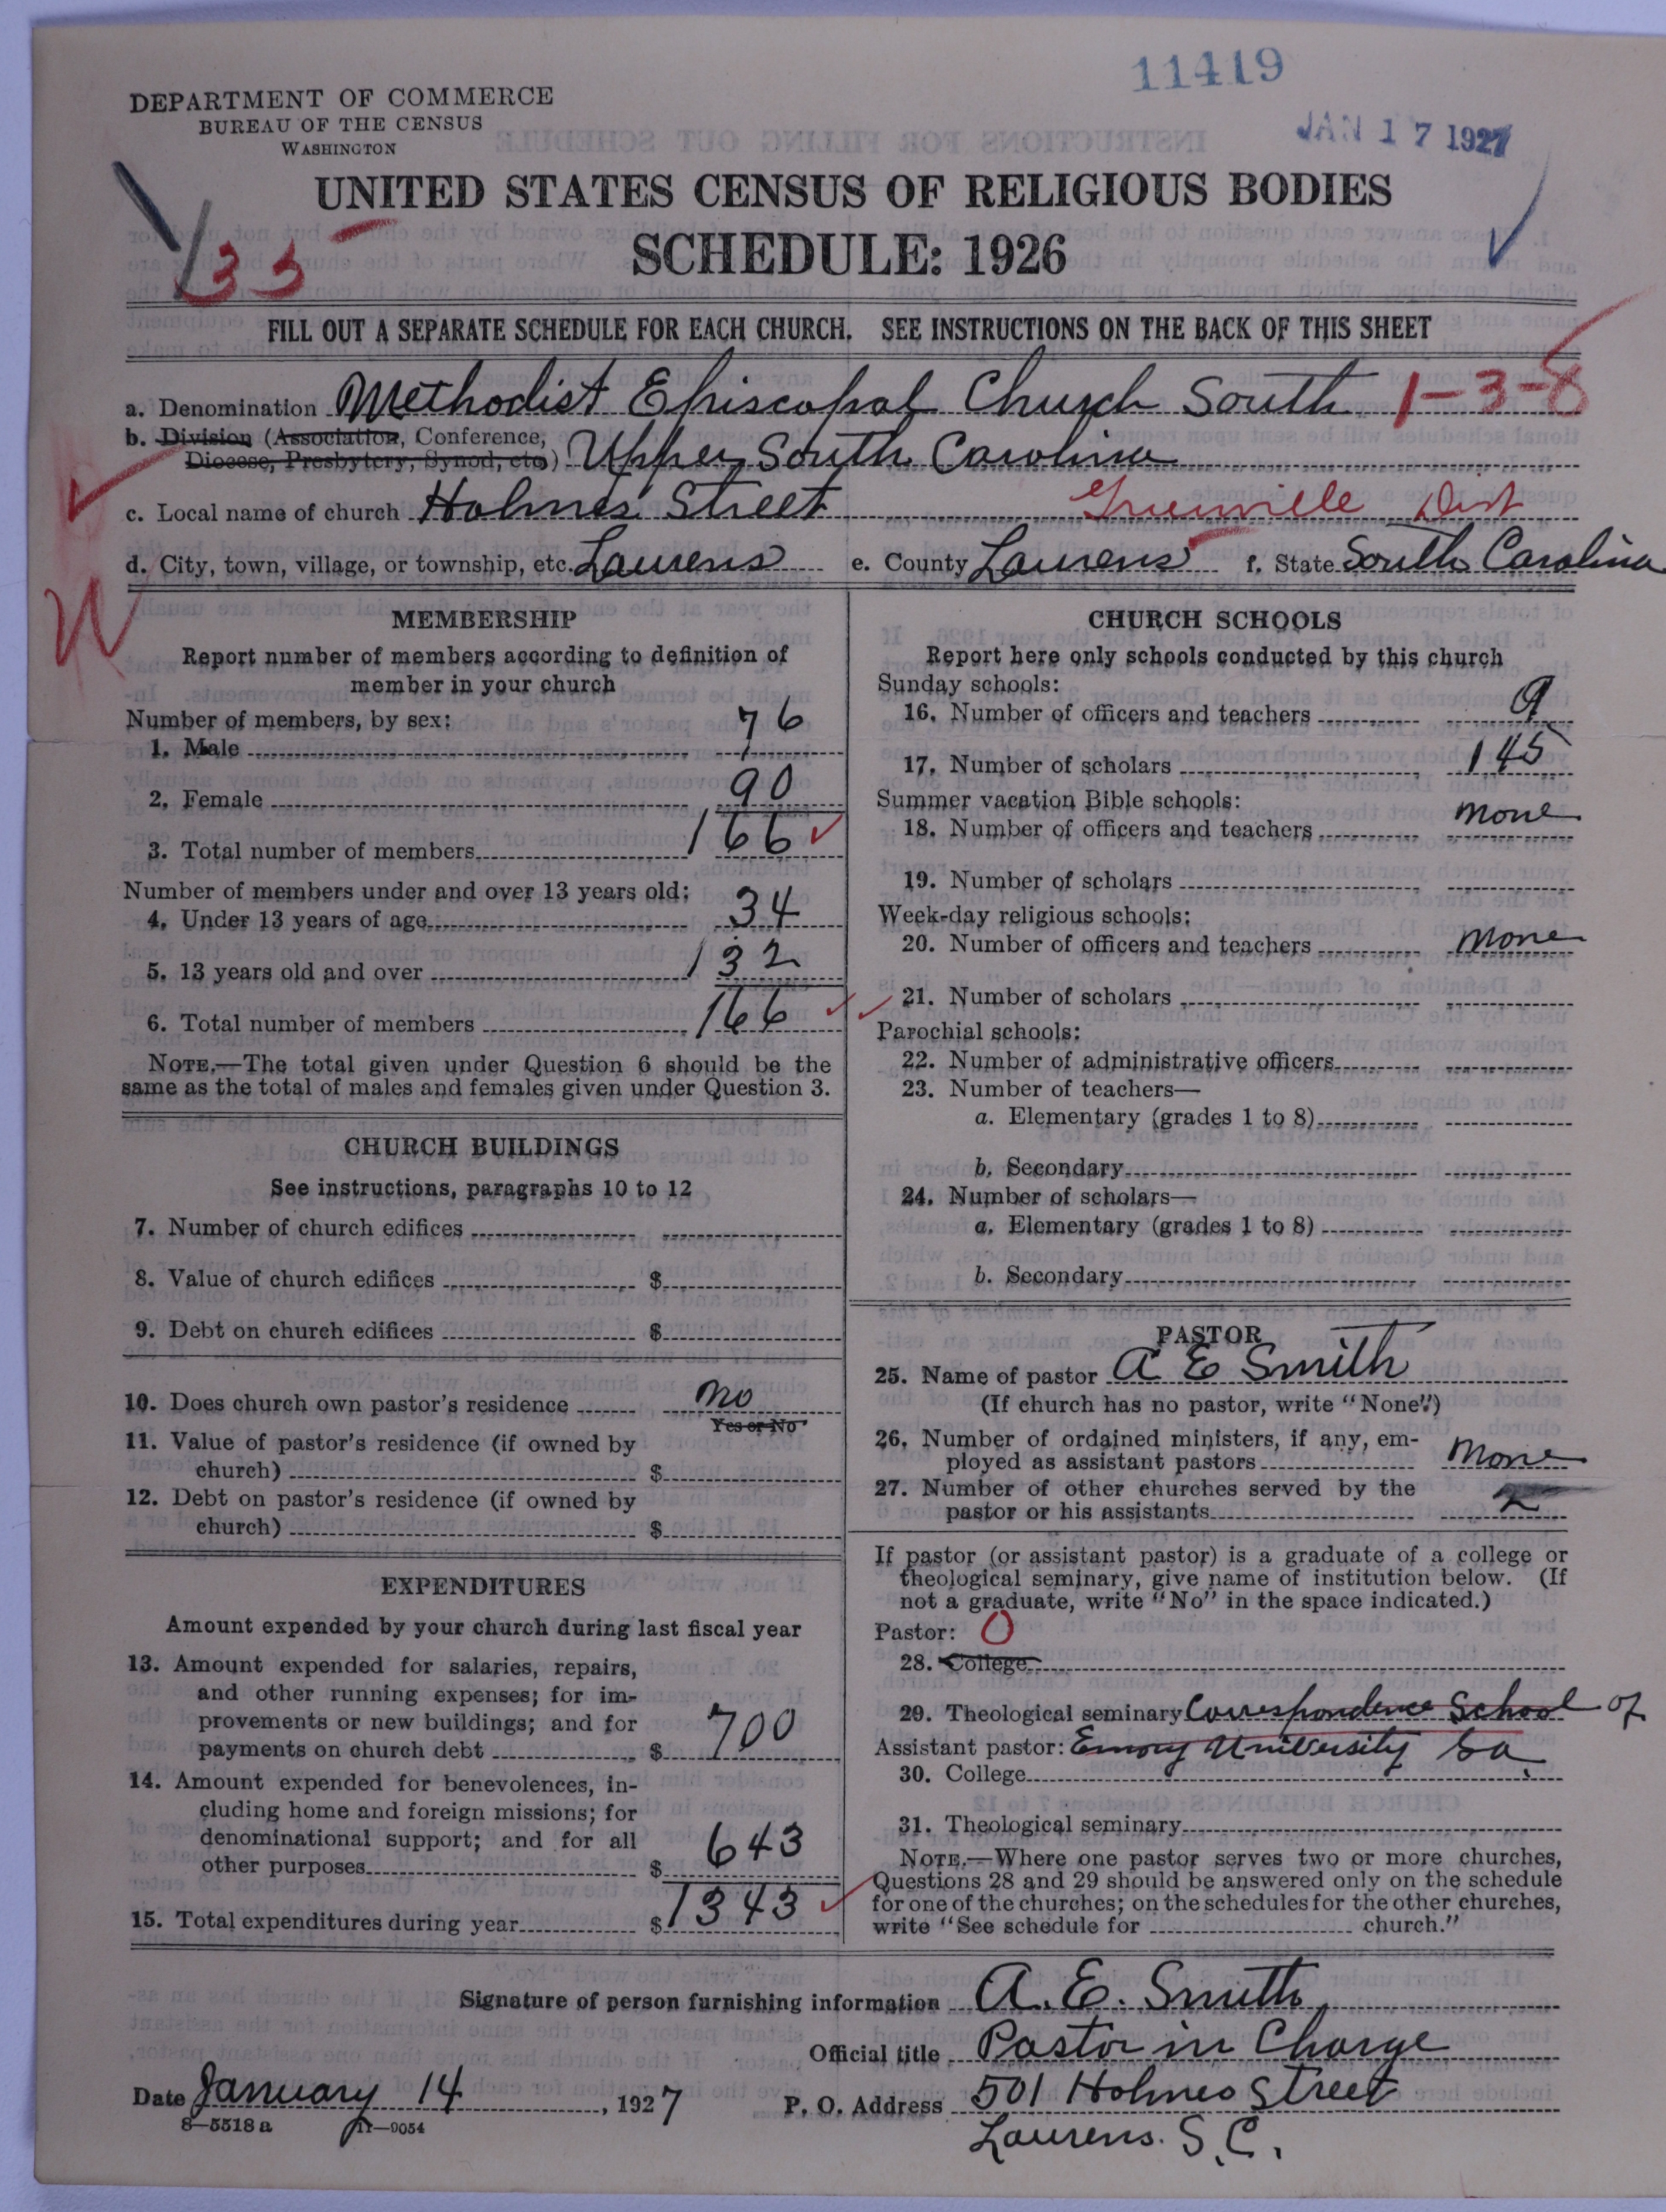 11419
DEPARTMENT OF COMMERCE
BUREAU OF THE CENSUS
WASHINGTON
JAN 17 1927
UNITED STATES CENSUS OF RELIGIOUS BODIES
SCHEDULE: 1926
35
FILL OUT A SEPARATE SCHEDULE FOR EACH CHURCH. SEE INSTRUCTIONS ON THE BACK OF THIS SHEET
a. Denomination Methodist Episcopal Church South 1-3-8
b. Division (Association, Conference,
Diocese, Presbytery, Synod, etc.) Upper South Carolina
c. Local name of church Holmes Street Greenville Dist
d. City, town, village, or township, etc. Laurens e. County Laurens f. State South Carolina
W
MEMBERSHIP
Report number of members according to definition of
member in your church
Number of members, by sex:
1. Male 76
2. Female 90
3. Total number of members 166
Number of members under and over 13 years old:
4. Under 13 years of age 34
5. 13 years old and over 132
6. Total number of members 166
NOTE.—The total given under Question 6 should be the
same as the total of males and females given under Question 3.
CHURCH BUILDINGS
See instructions, paragraphs 10 to 12
7. Number of church edifices
8. Value of church edifices $
9. Debt on church edifices $
10. Does church own pastor's residence no
Yes or No
11. Value of pastor's residence (if owned by
church) $
12. Debt on pastor's residence (if owned by
church) $
EXPENDITURES
Amount expended by your church during last fiscal year
13. Amount expended for salaries, repairs,
and other running expenses; for im-
provements or new buildings; and for
payments on church debt $ 700
14. Amount expended for benevolences, in-
cluding home and foreign missions; for
denominational support; and for all
other purposes $ 643
15. Total expenditures during year $ 1343
CHURCH SCHOOLS
Report here only schools conducted by this church
Sunday schools:
16. Number of officers and teachers 9
17. Number of scholars 145
Summer vacation Bible schools:
18. Number of officers and teachers none
19. Number of scholars
Week-day religious schools:
20. Number of officers and teachers none
21. Number of scholars
Parochial schools:
22. Number of administrative officers
23. Number of teachers—
a. Elementary (grades 1 to 8)
b. Secondary
24. Number of scholars—
a. Elementary (grades 1 to 8)
b. Secondary
PASTOR
25. Name of pastor A E Smith
(If church has no pastor, write "None")
26. Number of ordained ministers, if any, em-
ployed as assistant pastors none
27. Number of other churches served by the
pastor or his assistants
If pastor (or assistant pastor) is a graduate of a college or
theological seminary, give name of institution below. (If
not a graduate, write "No" in the space indicated.)
Pastor: O
28. College
29. Theological seminary Correspondence School of
Assistant pastor: Emory University Ga.
30. College
31. Theological seminary
NOTE.—Where one pastor serves two or more churches,
Questions 28 and 29 should be answered only on the schedule
for one of the churches; on the schedules for the other churches,
write "See schedule for church."
Signature of person furnishing information A. E. Smith
Official title Pastor in Charge
Date January 14, 1927 P. O. Address 501 Holmes Street
8—5518a 11—9054
Laurens. S. C.